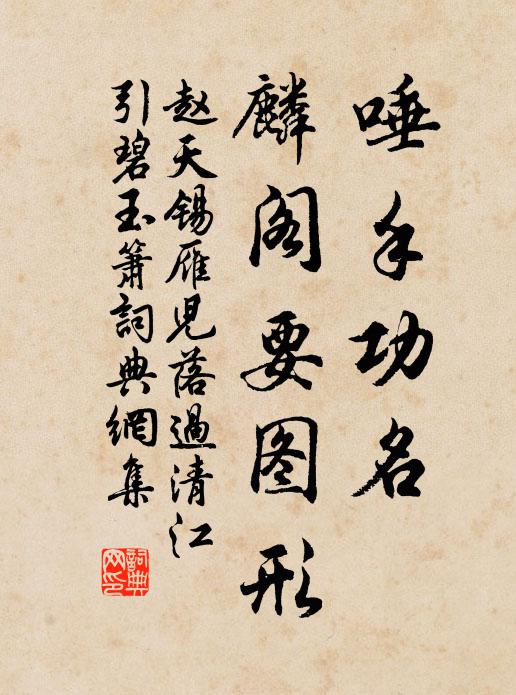 唾手功名
麟阁要图形
赵天锡雁児落過清江
引碧玉箫詞典網集
詞典网印